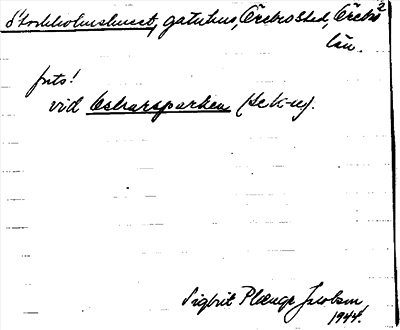 Stockholmshuset, gatuhus, Örebro stad, Örebro 2
län.
forts!
vid Oskarsparken
Sigbrit Plænge Jacobson
1944.